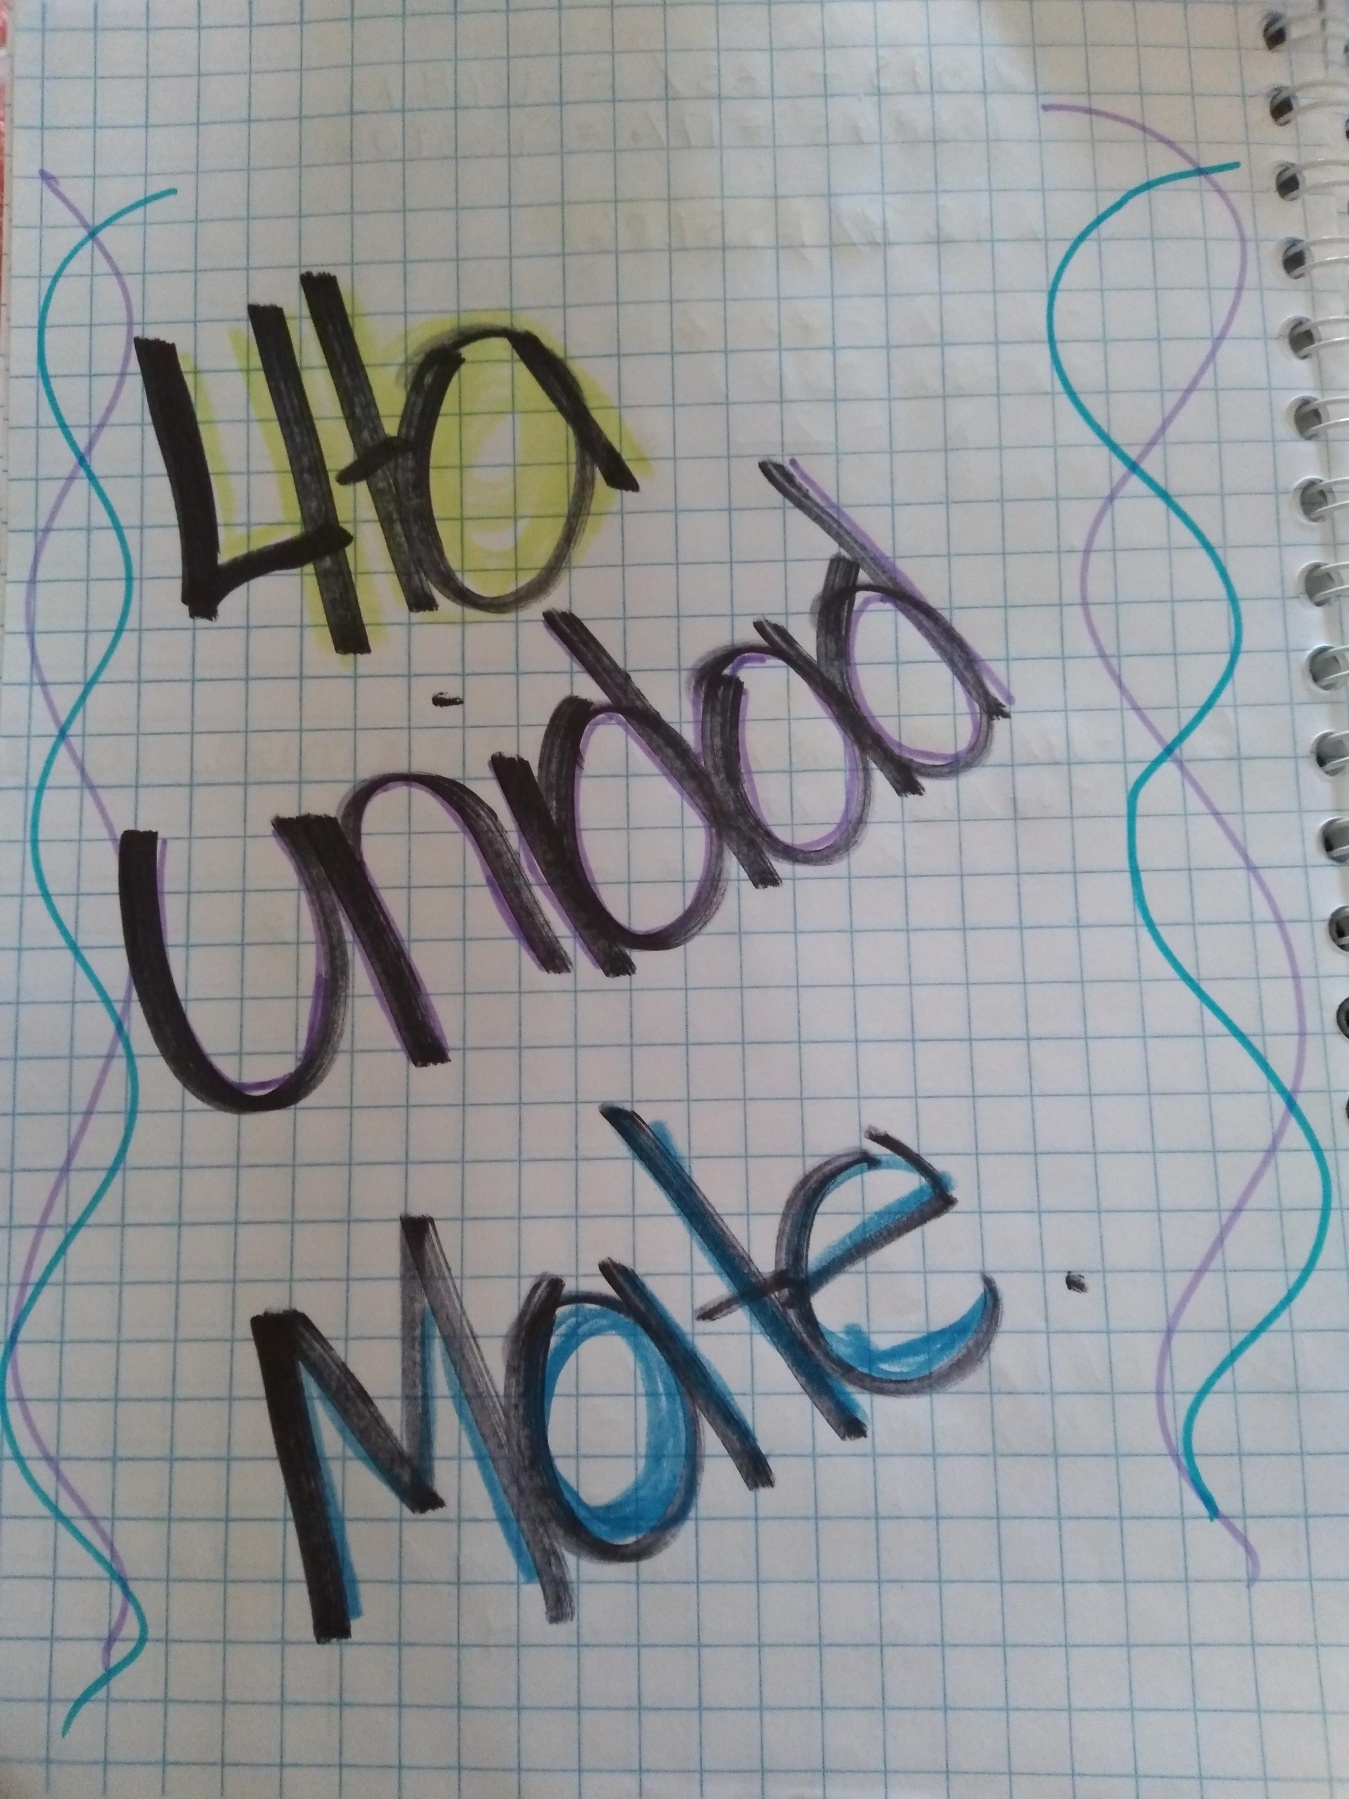 4ta
Unidad
Mate.